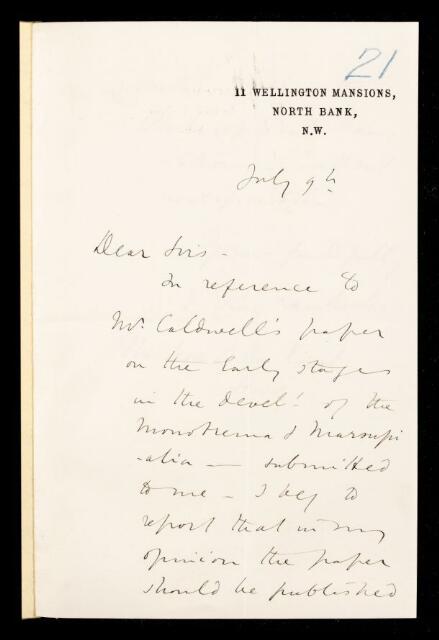 21
11 WELLINGTON MANSIONS,
NORTH BANK,
N.W.
July 9th
Dear Sirs -
In reference to
Mr. Caldwell's paper
on the Early stages
in the Devel.t of the
Monotrema & Marsupi
-alia — submitted
to me - I beg to
report that in my
opinion the paper
should be published